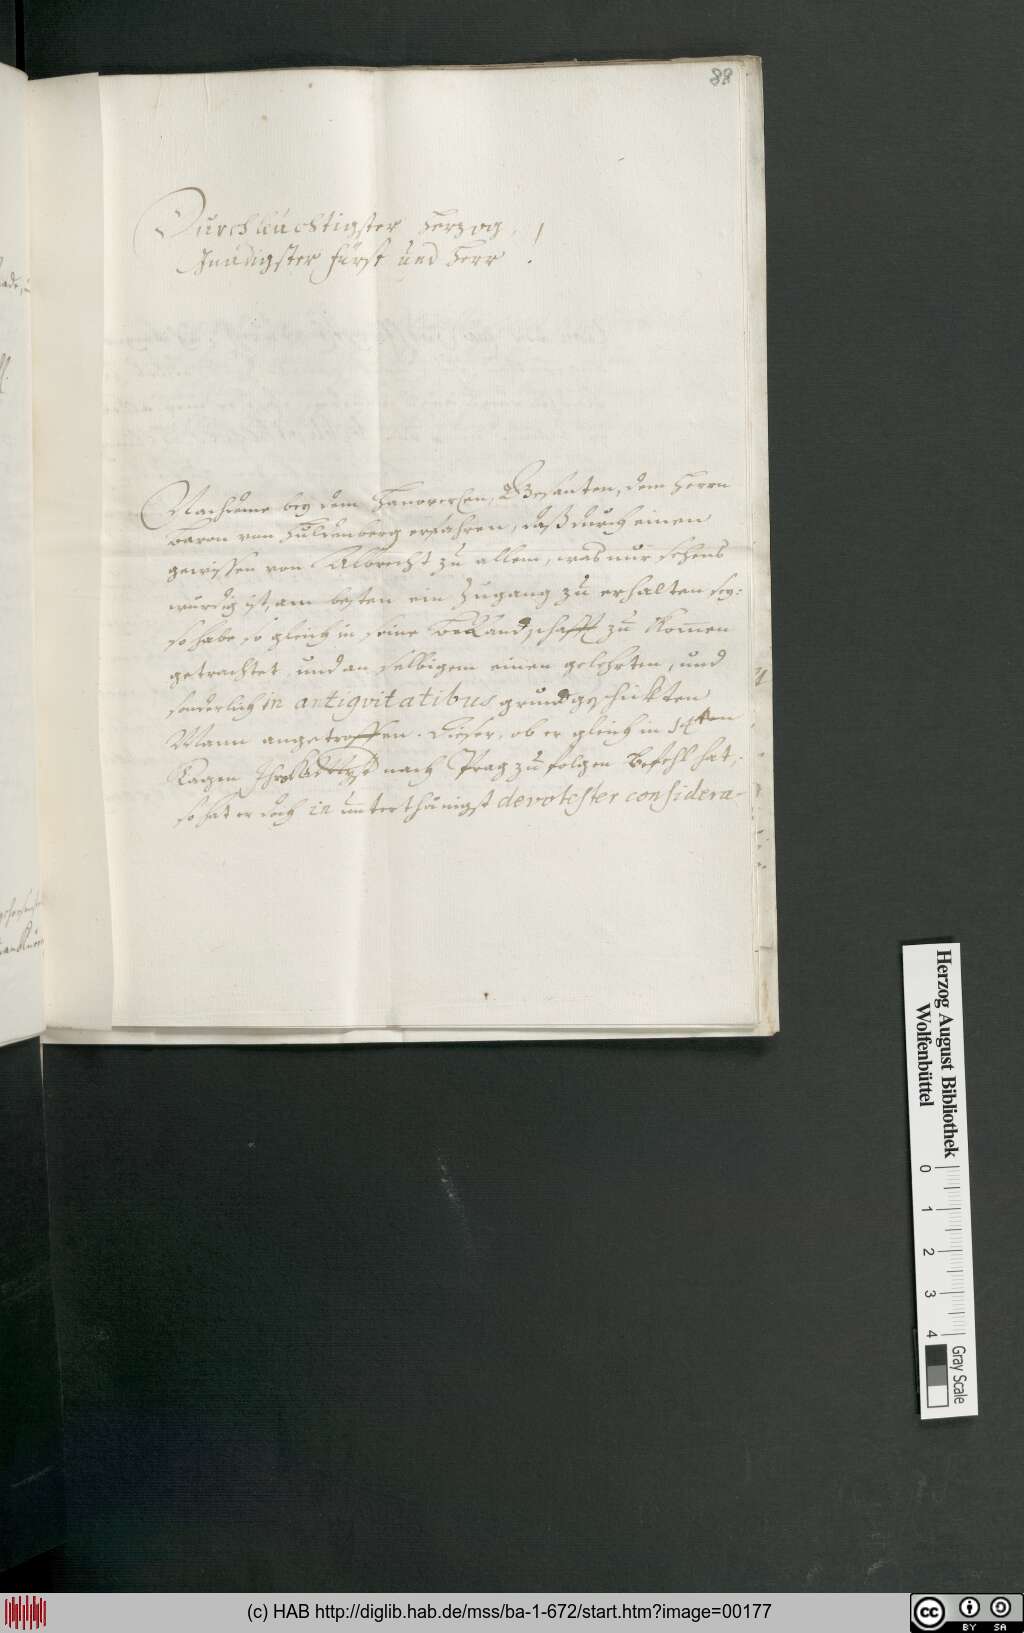 88
Durchleuchtigster Herzog,
Gnädigster Fürst und Herr.
Nachdeme bey dem Hanoverschen Gesanten, dem Herrn
Baron von Huldenberg erfahren, daß durch einen
gewissen von Albrecht zu allem, was nur sehens
würdig ist, am besten ein Zugang zu erhalten sey:
so habe so gleich in seine Bekandschafft zu kommen
getrachtet, und an selbigem einen gelehrten, und
sonderlich in antiqvitatibus grundgeschickten
Mann angetroffen. Dieser, ob er gleich in 14 ten
Tagen Ihro nach Prag zu folgen Befehl hat,
so hat er doch in unterthänigst devotester considera-
Herzog August Bibliothek
Wolfenbüttel
0 1 2 3 4
Gray Scale
(c) HAB http://diglib.hab.de/mss/ba-1-672/start.htm?image=00177
cc BY SA